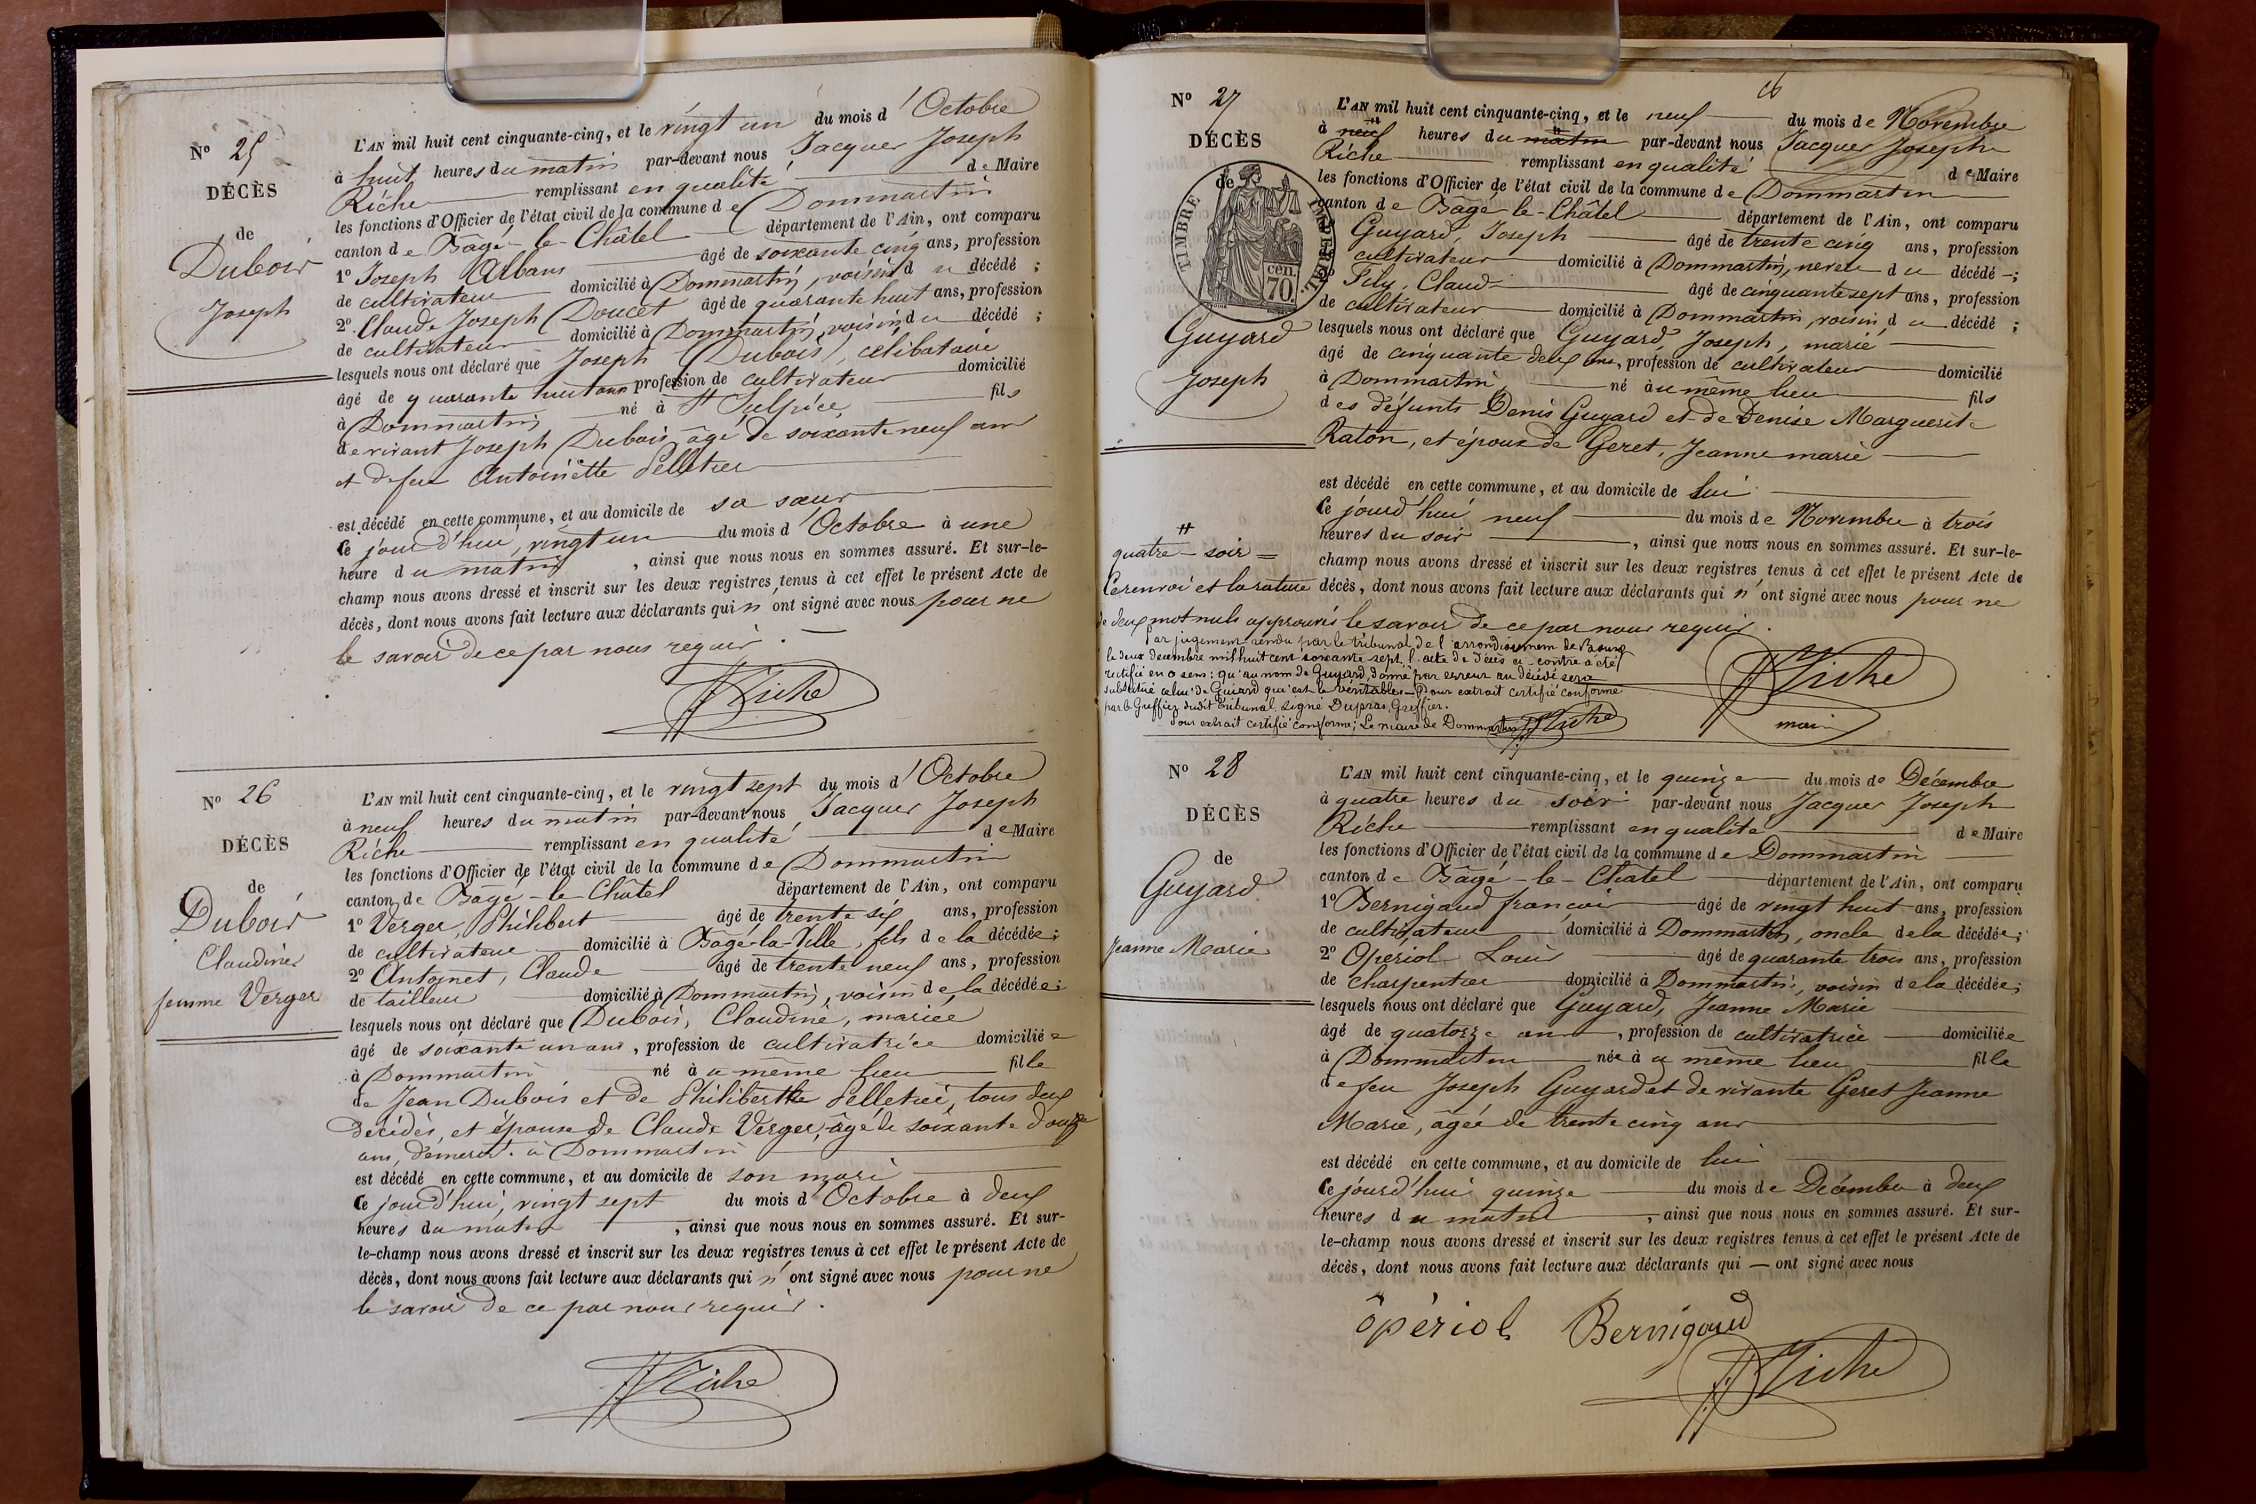 N° 25
DÉCÈS
de
Dubois
Joseph
L'AN mil huit cent cinquante-cinq, et le vingt un du mois d'Octobre
à huit heures du matin par-devant nous Jacques Joseph
Riche remplissant en qualité de Maire
les fonctions d'Officier de l'état civil de la commune de Dommartin
canton de Bâgé-le-Châtel département de l'Ain, ont comparu
1° Joseph Albans âgé de soixante cinq ans, profession
de cultivateur domicilié à Dommartin, voisin du décédé ;
2° Claude Joseph Doucet âgé de quarante huit ans, profession
de cultivateur domicilié à Dommartin, voisin du décédé ;
lesquels nous ont déclaré que Joseph Dubois, célibataire
âgé de quarante huit ans profession de cultivateur domicilié
à Dommartin né à St Sulpice fils
de vivant Joseph Dubois âgé de soixante neuf ans
et de feue Antoinette Pelletier
est décédé en cette commune, et au domicile de sa sœur
Ce jourd'hui, vingt un du mois d'Octobre à une
heure du matin, ainsi que nous nous en sommes assuré. Et sur-le-
champ nous avons dressé et inscrit sur les deux registres tenus à cet effet le présent Acte de
décès, dont nous avons fait lecture aux déclarants qui n'ont signé avec nous pour ne
le savoir de ce par nous requis.
JJ Riche
N° 26
DÉCÈS
de
Dubois
Claudine
femme Verger
L'AN mil huit cent cinquante-cinq, et le vingt sept du mois d'Octobre
à neuf heures du matin par-devant nous Jacques Joseph
Riche remplissant en qualité de Maire
les fonctions d'Officier de l'état civil de la commune de Dommartin
canton de Bâgé-le-Châtel département de l'Ain, ont comparu
1° Verger, Philibert âgé de trente six ans, profession
de cultivateur domicilié à Bâgé-la-Ville, fils de la décédée ;
2° Antoinet, Claude âgé de trente neuf ans, profession
de tailleur domicilié à Dommartin, voisin de la décédée ;
lesquels nous ont déclaré que Dubois, Claudine, mariée
âgé de soixante un ans, profession de cultivatrice domiciliée
à Dommartin né à u même lieu fille
de Jean Dubois et de Philiberthe Pelletier, tous deux
décédés, et épouse de Claude Verger, âgé de soixante douze
ans, demeurt. à Dommartin
est décédé en cette commune, et au domicile de son mari
Ce jourd'hui, vingt sept du mois d'Octobre à deux
heures du matin, ainsi que nous nous en sommes assuré. Et sur-
le-champ nous avons dressé et inscrit sur les deux registres tenus à cet effet le présent Acte de
décès, dont nous avons fait lecture aux déclarants qui n'ont signé avec nous pour ne
le savoir de ce par nous requis.
JJ Riche
N° 27
DÉCÈS
de
TIMBRE IMPERIAL
70 cen.
Guyard
Joseph
L'AN mil huit cent cinquante-cinq, et le neuf du mois de Novembre
à neuf heures du matin par-devant nous Jacques Joseph
Riche remplissant en qualité de Maire
les fonctions d'Officier de l'état civil de la commune de Dommartin
canton de Bâgé-le-Châtel département de l'Ain, ont comparu
Guyard, Joseph âgé de trente cinq ans, profession
cultivateur domicilié à Dommartin, neveu du décédé ;
Fily, Claude âgé de cinquante sept ans, profession
de cultivateur domicilié à Dommartin, voisin du décédé ;
lesquels nous ont déclaré que Guyard, Joseph, marié
âgé de cinquante deux ans, profession de cultivateur domicilié
à Dommartin, né au même lieu fils
des défunts Denis Guyard et de Denise Marguerite
Raton, et époux de Geret, Jeanne marie
est décédé en cette commune, et au domicile de lui
Ce jourd'hui neuf du mois de Novembre à trois
heures du soir, ainsi que nous nous en sommes assuré. Et sur-le-
champ nous avons dressé et inscrit sur les deux registres tenus à cet effet le présent Acte de
décès, dont nous avons fait lecture aux déclarants qui n'ont signé avec nous pour ne
le savoir de ce par nous requis.
quatre - soir =
Ce renvoi et la rature
de deux mots nuls approuvés
Par jugement rendu par le tribunal de l'arrondissement de Bourg
le deux décembre mil huit cent soixante sept, l'acte de décès ci-contre a été
rectifié en ce sens : qu'au nom de Guyard, donné par erreur au décédé sera
substitué celui de Guiard qui est le véritable - Pour extrait certifié conforme
par le Greffier dudit Tribunal signé Dupras, Greffier.
Pour extrait certifié conforme ; Le maire de Dommartin JJ Riche
JJ Riche
maire
N° 28
DÉCÈS
de
Guyard
Jeanne Marie
L'AN mil huit cent cinquante-cinq, et le quinze du mois de Décembre
à quatre heures du soir par-devant nous Jacques Joseph
Riche remplissant en qualité de Maire
les fonctions d'Officier de l'état civil de la commune de Dommartin
canton de Bâgé-le-Châtel département de l'Ain, ont comparu
1° Bernigaud françois âgé de vingt huit ans, profession
de cultivateur domicilié à Dommartin, oncle de la décédée ;
2° Opériol Louis âgé de quarante trois ans, profession
de charpentier domicilié à Dommartin, voisin de la décédée ;
lesquels nous ont déclaré que Guyard, Jeanne Marie
âgé de quatorze ans, profession de cultivatrice domiciliée
à Dommartin née à u même lieu fille
de feu Joseph Guyard et de vivante Geret Jeanne
Marie, âgée de trente cinq ans
est décédé en cette commune, et au domicile de lui
Ce jourd'hui quinze du mois de Décembre à deux
heures du matin, ainsi que nous nous en sommes assuré. Et sur-
le-champ nous avons dressé et inscrit sur les deux registres tenus à cet effet le présent Acte de
décès, dont nous avons fait lecture aux déclarants qui — ont signé avec nous
ôpériol Bernigaud
JJ Riche